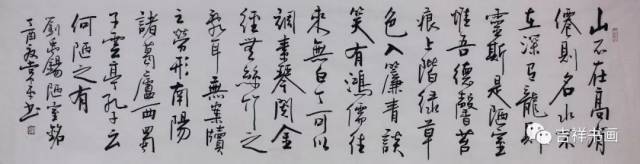 山不在高有
僊則名水不
在深有龍則
靈斯是陋室
惟吾德馨苔
痕上階緑草
色入簾青談
笑有鴻儒往
來無白丁可以
調素琴閱金
經無絲竹之
亂耳無案牘
之勞形南陽
諸葛廬西蜀
子雲亭孔子云
何陋之有
劉禹錫陋室銘
丁酉書
吉祥书画